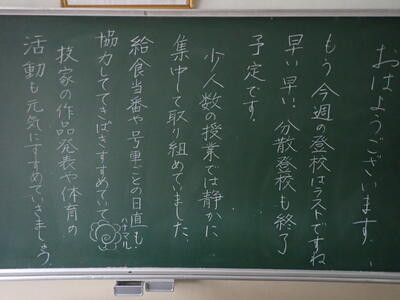 おはようございます。
もう今週の登校はラストですね
早い早い！分散登校も終了
予定です。
少人数の授業では静かに
集中して取り組めていました。
給食当番や号車ごとの日直も
協力しててきぱきすすめていて
ハナマル
技家の作品発表や体育の
活動も元気にすすめていきましょう